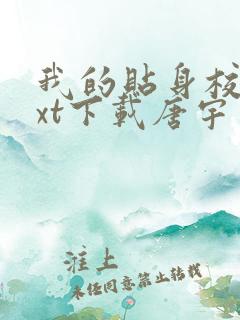 我的贴身校
xt下载唐宇
淮上
未经同意禁止转载